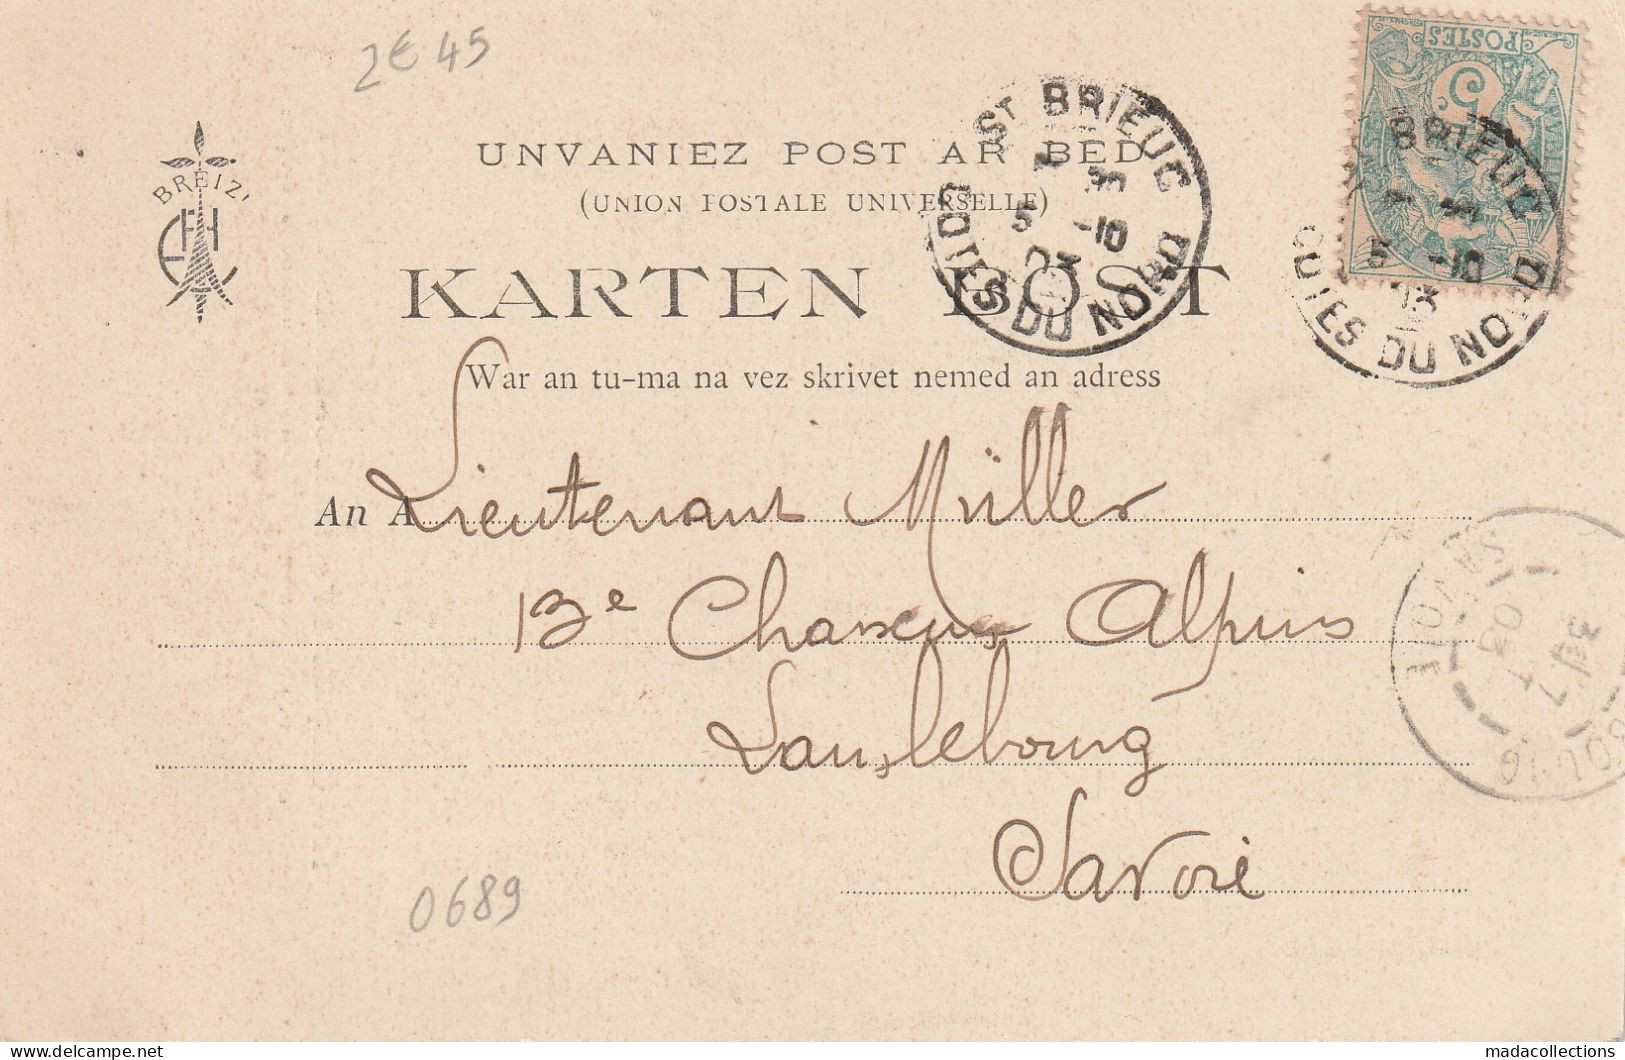 2€45
BREIZ
UNVANIEZ POST AR BED
(UNION POSTALE UNIVERSELLE)
KARTEN POST
War an tu-ma na vez skrivet nemed an adress
An A
Lieutenant Müller
13e Chasseurs Alpins
Lanslebourg
Savoie
0689
ST BRIEUC
5 -10
03
COTES DU NORD
POSTES
5
BRIEUC
5 -10
03
COTES DU NORD
SAVOIE
7
03
madacollections
delcampe.net